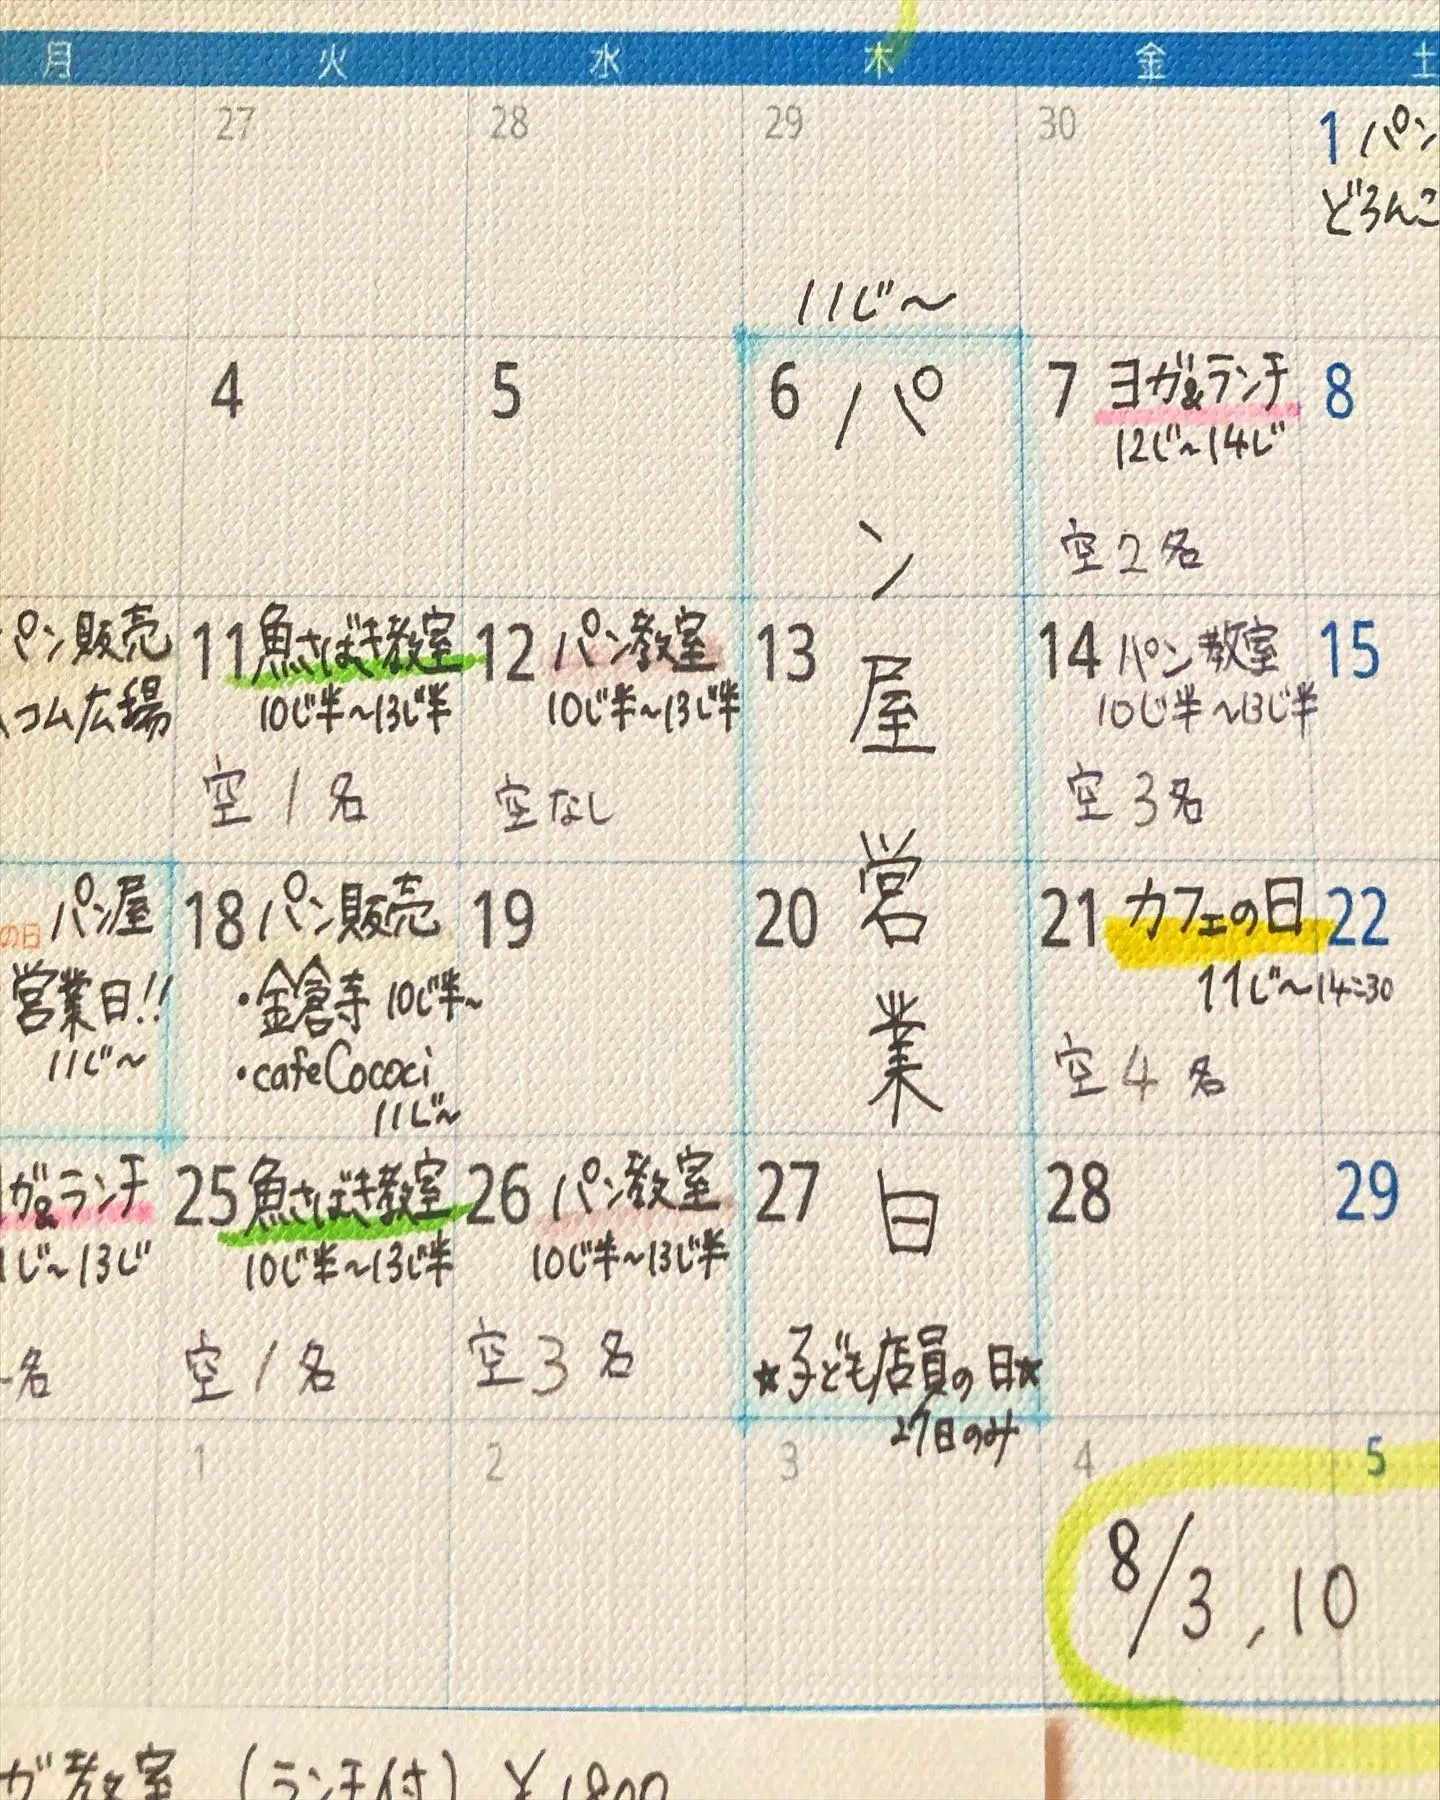 月 火 水 木 金 土
27 28 29 30 1 パン
どろんこ
11じ〜
4 5 6 7 ヨガ&ランチ 8
12じ〜14じ
空2名
パン屋営業日
パン販売
コム広場
11 魚さばき教室
10じ半〜13じ半
空1名
12 パン教室
10じ半〜13じ半
空なし
13
14 パン教室
10じ半〜13じ半
空3名
15
の日 パン屋
営業日!!
11じ〜
18 パン販売
・金倉寺 10じ半〜
・cafeCococi
11じ〜
19
20
21 カフェの日
11じ〜14:30
空4名
22
ガ&ランチ
1じ〜13じ
名
25 魚さばき教室
10じ半〜13じ半
空1名
26 パン教室
10じ半〜13じ半
空3名
27
★子ども店員の日★
27日のみ
28 29
1 2 3 4 5
8/3,10
ガ教室(ランチ付)¥1800